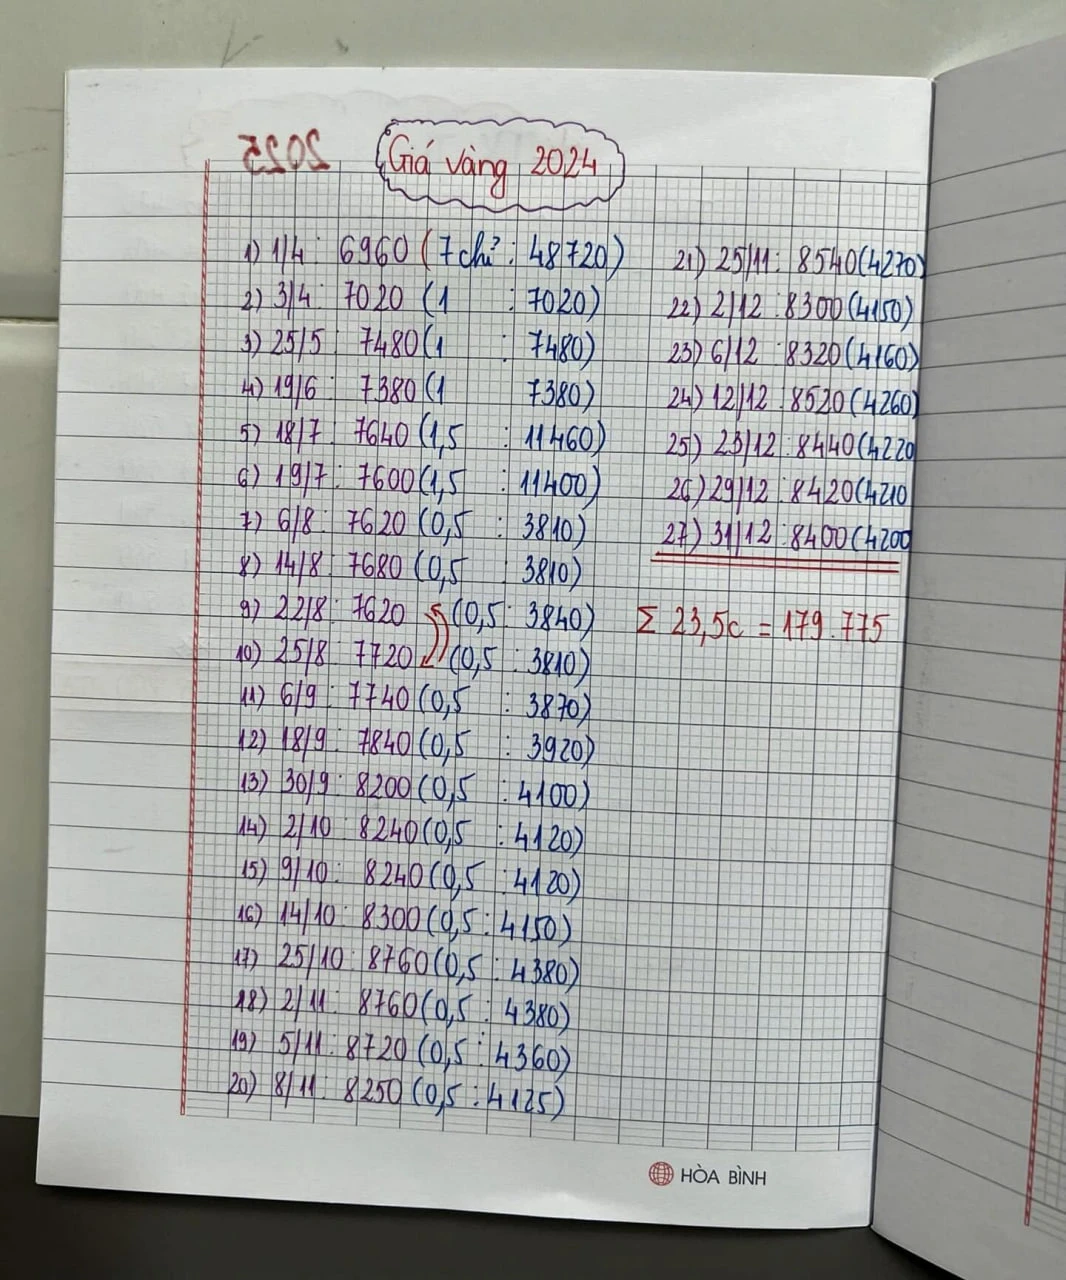 2025
Giá vàng 2024
1) 1/4: 6960 (7 chỉ: 48720)
2) 3/4: 7020 (1 : 7020)
3) 25/5: 7480 (1 : 7480)
4) 19/6: 7380 (1 7380)
5) 18/7: 7640 (1,5 : 11460)
6) 19/7: 7600 (1,5 : 11400)
7) 6/8: 7620 (0,5 : 3810)
8) 14/8: 7680 (0,5 : 3810)
9) 22/8: 7620 (0,5: 3840)
10) 25/8: 7720 (0,5 : 3810)
11) 6/9: 7740 (0,5 : 3870)
12) 18/9: 7840 (0,5 : 3920)
13) 30/9: 8200 (0,5 : 4100)
14) 2/10: 8240 (0,5 : 4120)
15) 9/10: 8240 (0,5 : 4120)
16) 14/10: 8300 (0,5: 4150)
17) 25/10: 8760 (0,5: 4380)
18) 2/11: 8760 (0,5: 4380)
19) 5/11: 8720 (0,5: 4360)
20) 8/11: 8250 (0,5: 4125)
21) 25/11: 8540 (4270)
22) 2/12: 8300 (4150)
23) 6/12: 8320 (4160)
24) 12/12: 8520 (4260)
25) 23/12: 8440 (4220
26) 29/12: 8420 (4210
27) 31/12: 8400 (4200
Σ 23,5c = 179.775
HÒA BÌNH